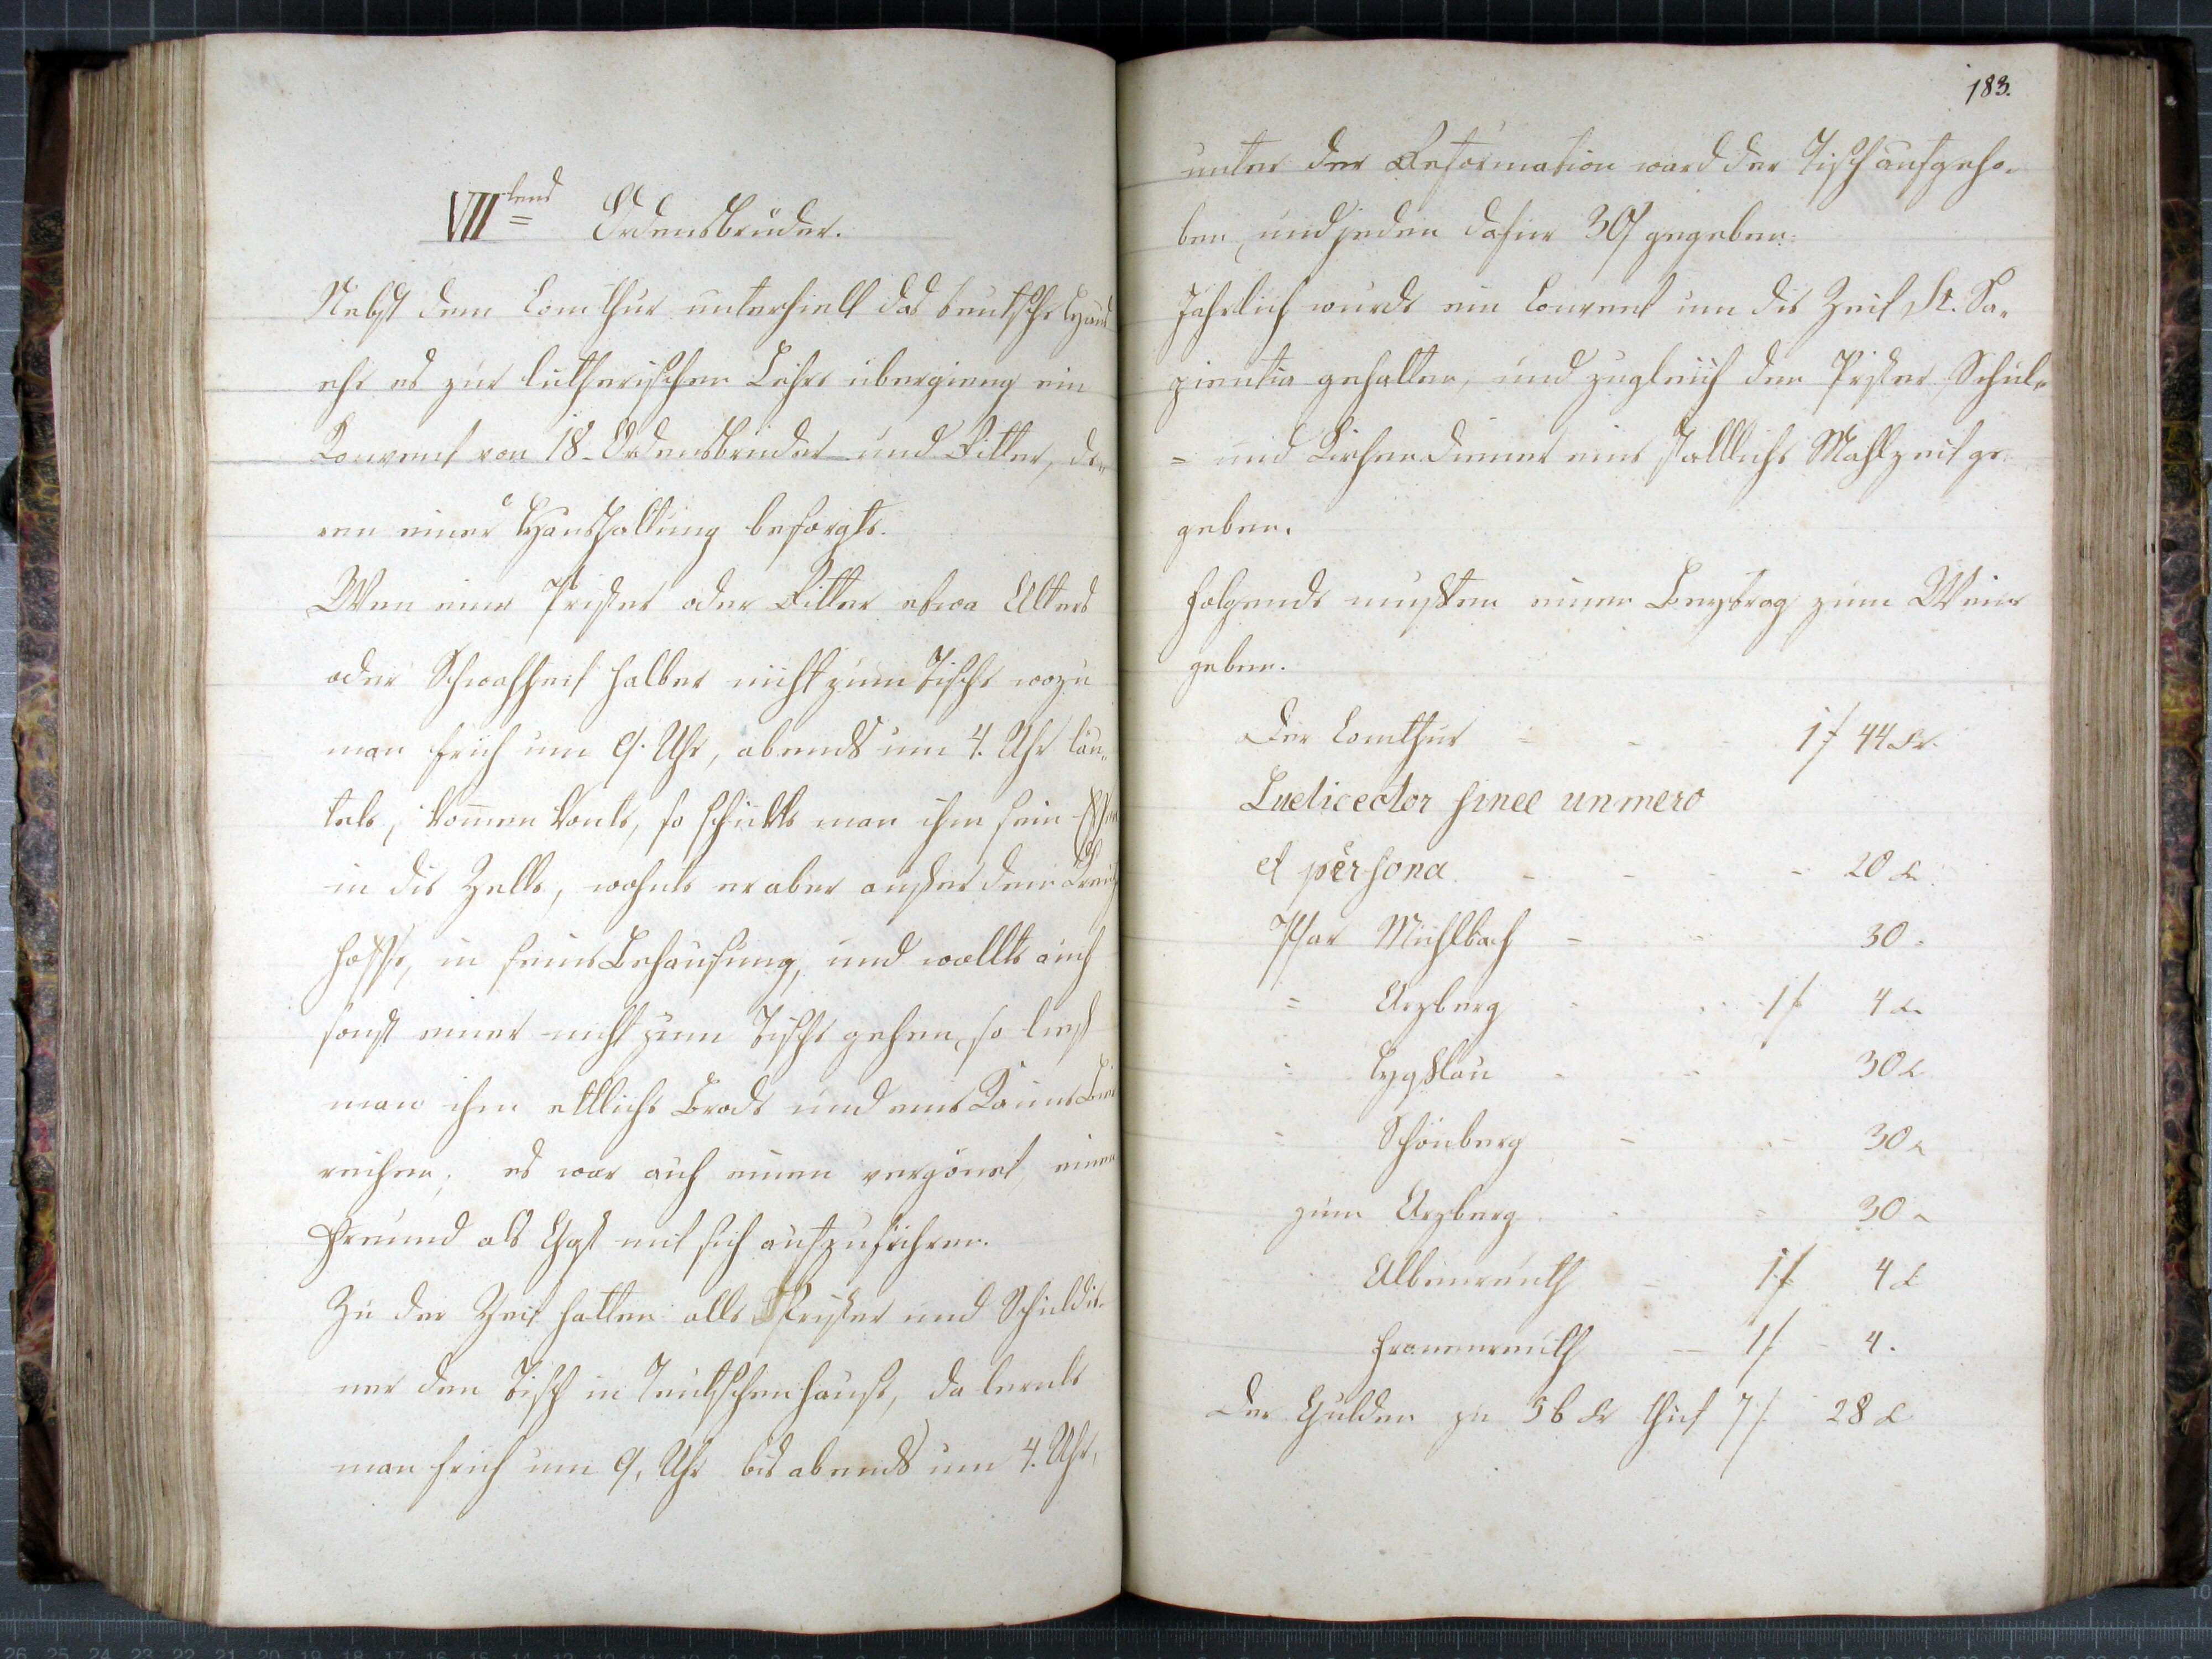 VII tens Ordensbrüder.
Nebst dem Comthur unterhielt das deutsche Haus
ehe es zur lutherischen Lehre übergieng ein
Konvent von 18 Ordensbrüder und Ritter, de
ren einer Haushaltung besorgte.
Wen einer Prister oder Ritter etwa Alters
oder Schwachheit halber nicht zum Tische wozu
man früh um 9. Uhr, abends um 4. Uhr läu„
tete, kom̄en konte, so schickte man ihm sein Essen
in die Zelle, wohnte er aber außer dem Kreuz
hofe, in seine Behausung, und wollte auch
sonst einer nicht zum Tische gehen, so ließ
man ihm ettliche Brode und eine Kan̄e Bier
reichen; es war auch einem vergönet, einen
Freund als Gast mit sich aufzuführen.
Zu der Zeit hatten alle Prister und Schuldie„
ner den Tisch in Teutschenhause, da lernte
man früh um 9. Uhr bis abends um 4. Uhr,
183.
unter der Reformation ward der Tisch aufgeho„
ben, und jeden dafür 30 f gegeben.
Jährlich wurde ein Convent um die Zeit St. Sa„
pientia gehalten, und zugleich den Prister, Schul„
= und Kirchendiener eine stattliche Mahlzeit ge
geben.
Folgende mußten einen Beytrag zum Wein
geben.
Der Comthur - - - 1 f 44 kr.
et persona - - - - 20 kr.
Pfar Mühlbach - - 30 -
= Arzberg - - 1 f 4 kr
= Haßlau - - 30 kr
= Schönberg - - 30 kr
zum Arzberg - - 30 -
Albenreuth - 1 f 4 kr
Frauenreuth - 1 f - 4.
Der Gulden zu 56 kr thut 7 f 28 kr